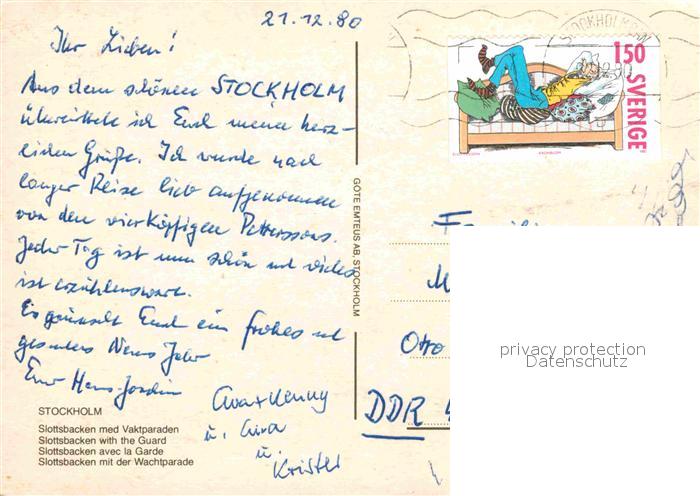 21.12.80
Ihr Lieben!
Aus dem schönen STOCKHOLM
übermittele ich Euch meine herz-
lichen Grüße. Ich wurde nach
langer Reise lieb aufgenommen
von den vierköpfigen Petterssons.
Jeder Tag ist nun schön und vieles
ist erzählenswert.
Es grüßt Euch ein frohes und
gesundes Neues Jahr
Euer Hans-Joachim
u.
u.
Krister
STOCKHOLM
Slottsbacken med Vaktparaden
Slottsbacken with the Guard
Slottsbacken avec la Garde
Slottsbacken mit der Wachtparade
GÖTE EMTEUS AB, STOCKHOLM
STOCKHOLM
150
SVERIGE
Otto
DDR
privacy protection
Datenschutz